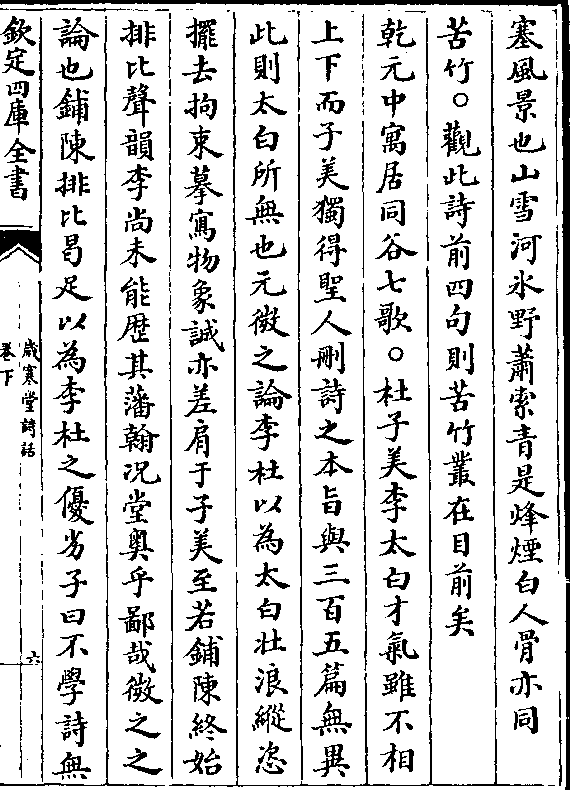 塞風景也山雪河氷野蕭索青是烽煙白人骨亦同
苦竹○觀此詩前四句則苦竹叢在目前矣
乾元中寓居同谷七歌○杜子美李太白才氣雖不相
上下而子美獨得聖人刪詩之本旨與三百五篇無異
此則太白所無也元微之論李杜以為太白壯浪縱恣
擺去拘束摹寫物象誠亦差肩于子美至若鋪陳終始
排比聲韻李尚未能歴其藩翰况堂奥乎鄙哉微之之
論也鋪陳排比曷足以為李杜之優劣子曰不學詩無
欽定四庫全書
歲寒堂詩話
卷下
六